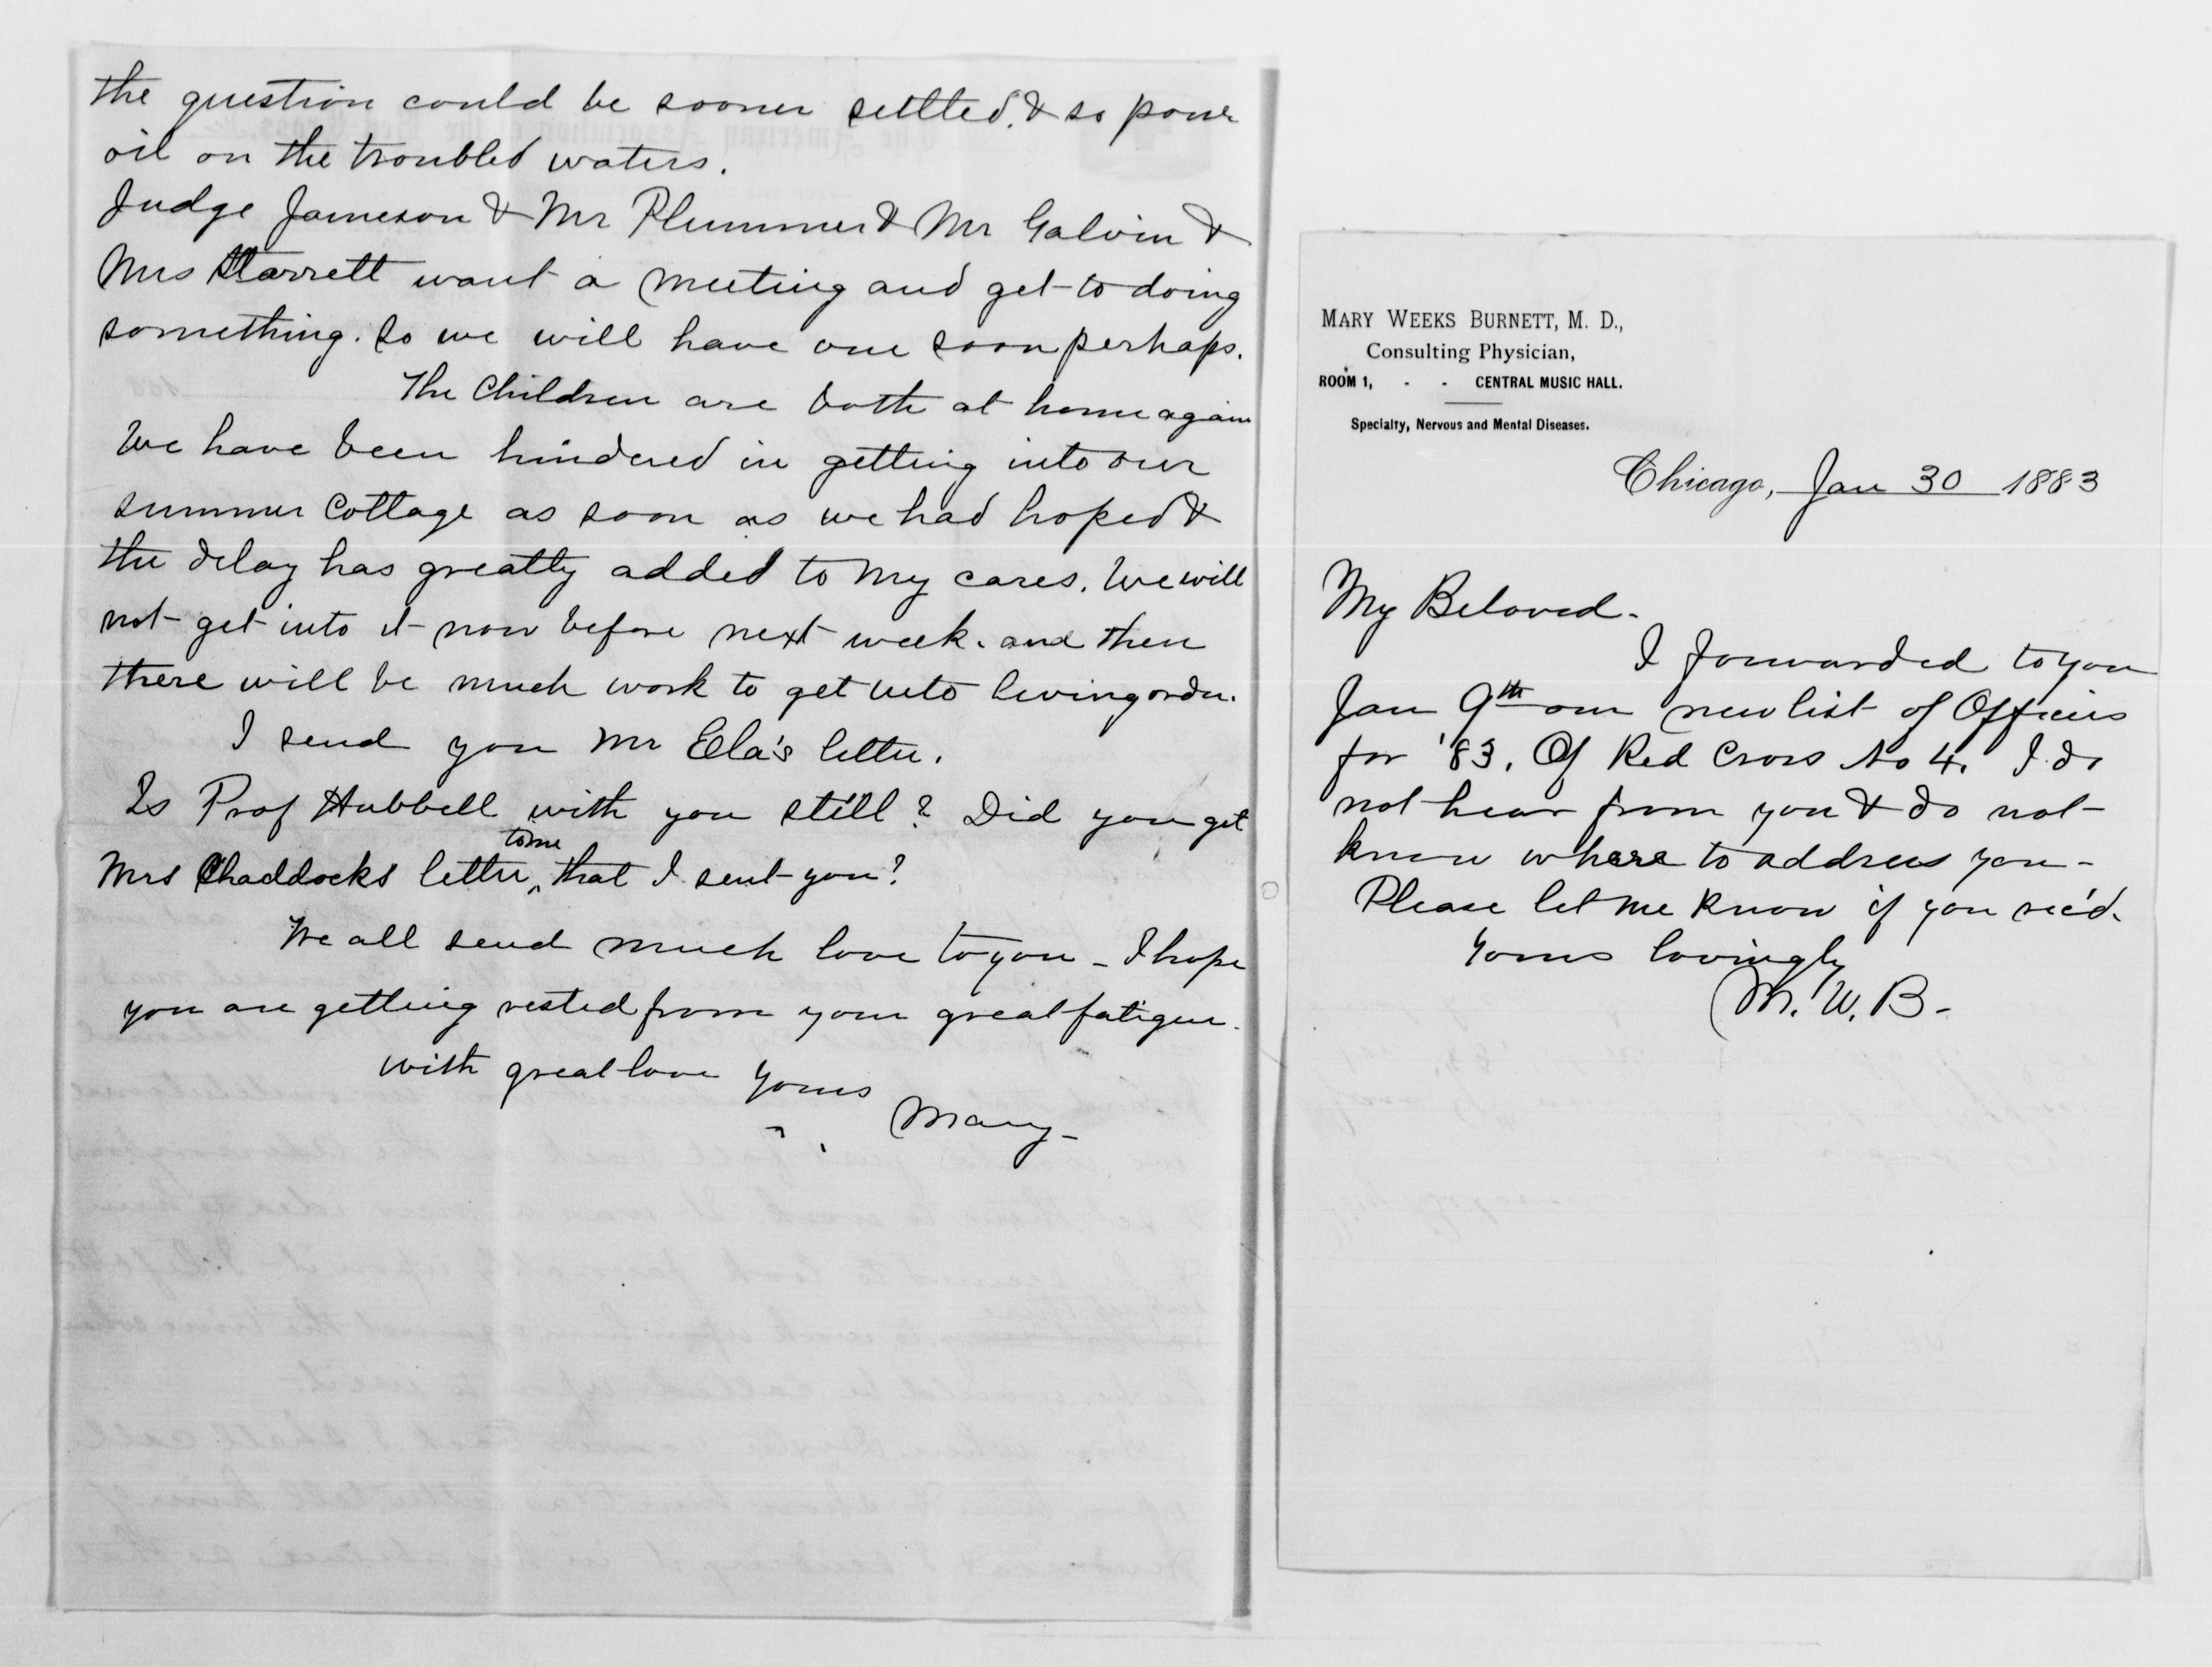 the question could be sooner settled, & so pour
oil on the troubled waters.
Judge Jameson & Mr Plummer & Mr Galvin &
Mrs Starrett want a meeting and get to doing
something. So we will have one soon perhaps.
The Children are both at home again
We have been hindered in getting into our
summer Cottage as soon as we had hoped &
the delay has greatly added to my cares. We will
not get into it now before next week. and then
there will be much work to get into living order.
I send you Mr Ela's letter.
Is Prof Hubbell with you still? Did you get
to me
Mrs Chaddocks letter ^ that I sent you?
We all send much love to you - I hope
you are getting rested from your great fatigue.
with great love Yours
Mary -
MARY WEEKS BURNETT, M. D.,
Consulting Physician,
ROOM 1, - - CENTRAL MUSIC HALL.
Specialty, Nervous and Mental Diseases.
Chicago, Jan 30 1883
My Beloved -
I forwarded to you
Jan 9th our new list of Officers
for '83. Of Red Cross No 4. I do
not hear from you & do not
know where to address you -
Please let me know if you rec'd.
Yours lovingly
M. W. B -